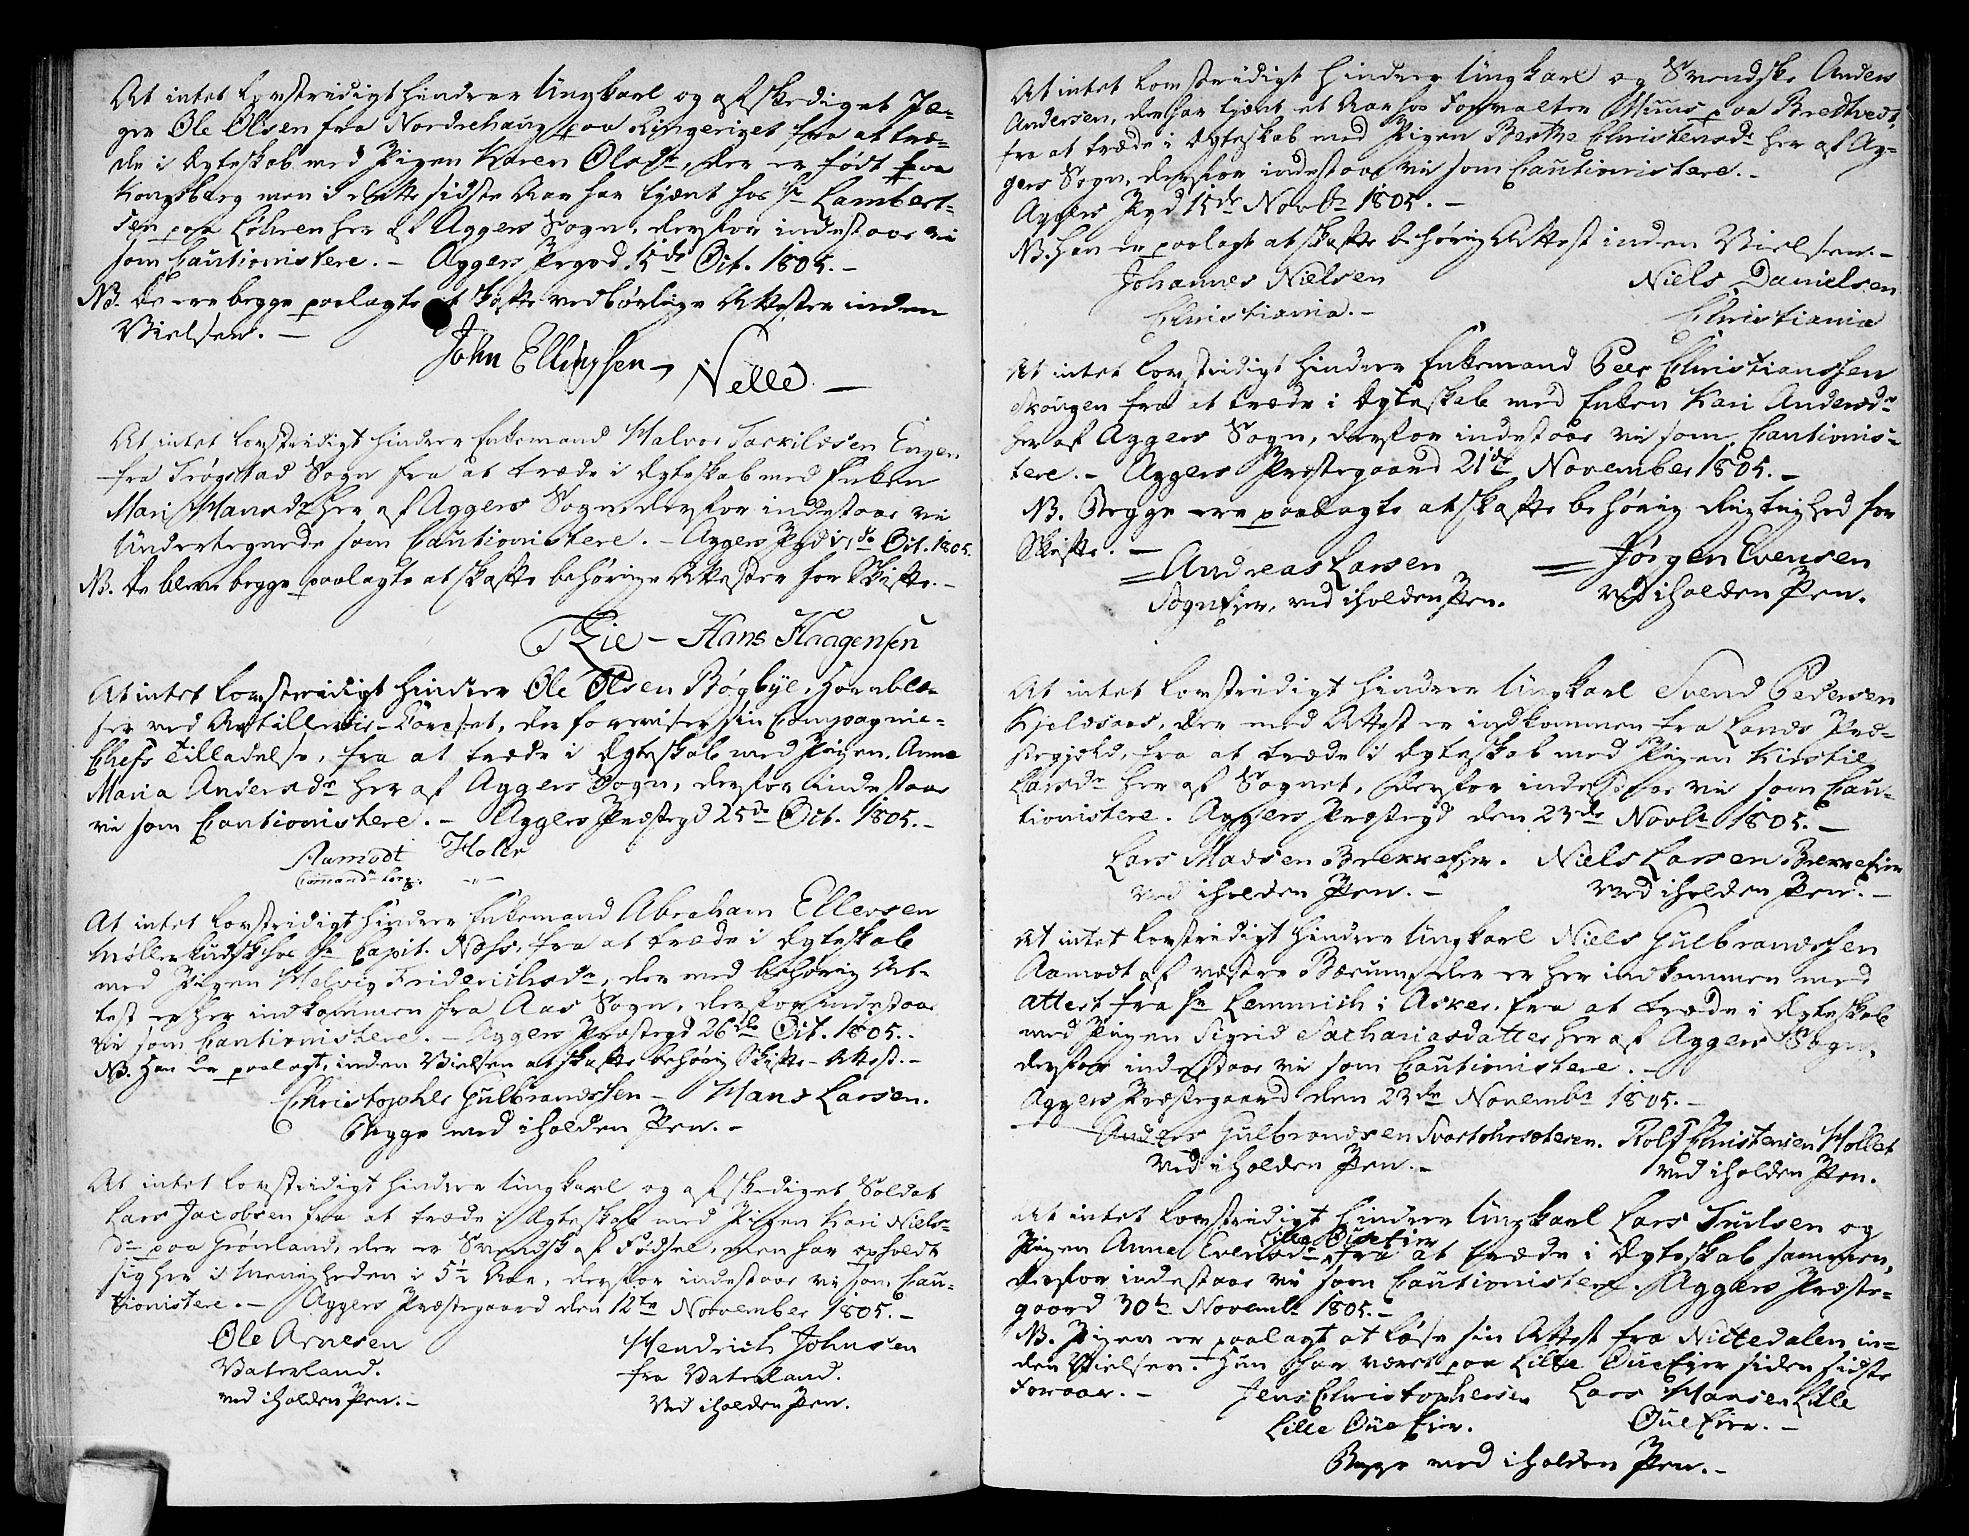 At intet lovstridigt hindrer Ungkarl og afskediget Jæ-
ger Ole Olsen fra Nordrehaug paa Ringeriget fra at træ-
de i Ægteskab med Pigen Karen Olsdr, der er født paa
Kongsberg men i dette sidste Aar har tjent hos Hr Lambert-
sen paa Löhren her af Aggers Sogn, derfor indestaae vi
som Cautionistere. - Aggers Prgrd. 15de Oct. 1805. -
NB. De ere begge paalagte at skaffe vedbørlige Attester inden
Vielsen. -
John Ellingsen - Nelle. -
At intet lovstridigt hindrer Enkemand Halvor Tarkildsen Engen
fra Trøgstad Sogn fra at træde i Ægteskab med Enken
Mari Hansdr her af Aggers Sogn derfor indestaae vi
Undertegnede som Cautionistere. - Aggers Pgd 17de Oct. 1805.
NB. De bleve begge paalagte at skaffe behørige Attester for Skifte. -
Rie - Hans Haagensen
At intet lovstridigt hindrer Ole Olsen Bøgbye, Hornblæ-
ser ved Artillerie-Corpset, der foreviser sin Compagnie-
Chefs Tilladelse, fra at træde i Ægteskab med Pigen Anne
Maria Andersdr her af Aggers Sogn, derfor indestaae
vi som Cautionistere. - Aggers Præstegd 25de Oct. 1805. -
Aamodt Holer
Command. Serg. -"-
At intet lovstridigt hindrer Enkemand Abraham Ellevsen
Møllerkudsk hos Hr Capit. Næss, fra at træde i Ægteskab
med Pigen Helvig Friderichsdr, der med behørig At-
test er her indkommen fra Aas Sogn, derfor indestaae
vi som Cautionistere. - Aggers Præstegd 26de Oct. 1805. -
NB. Han er paalagt, inden Vielsen at skaffe behørig Skifte-Attest. -
Christopher Gulbrandssen - Hans Larsen.
Begge med iholden Pen. -
At intet lovstridigt hindrer Ungkarl og afskediget Soldat
Lars Jacobsen fra at træde i Ægteskab med Pigen Kari Niels-
dr paa Grønland, der er Svendsk af Fødsel, men har opholdt
sig her i Menigheden i 5½ Aar, derfor indestaae vi som Cau-
tionistere. - Aggers Præstegaard den 12te November 1805. -
Ole Arnesen Hendrich Johnsen
Vaterland. fra Vaterland.
ved iholden Pen. - Ved iholden Pen.
At intet lovstridigt hindrer Ungkarl og Svendske Anders
Andersen, der har tjent et Aar hos Forvalter Muus paa Bredtvedt,
fra at træde i Ægteskab med Pigen Berthe Christensdr her af Ag-
gers Sogn, derfor indestaae vi som Cautionistere. -
Aggers Pgd 15de Novbr 1805. -
NB. Han er paalagt at skaffe behørig Attest inden Vielsen. -
Johannes Nielsen Niels Danielsen
Christiania. - Christiania
At intet lovstridigt hindrer Enkemand Peer Christianssen
Skougen fra at træde i Ægteskab med Enken Kari Andersdr
her af Aggers Sogn, derfor indestaae vi som Cautionis-
tere. - Aggers Præstegaard 21de November 1805. -
NB. Begge ere paalagte at skaffe behørig Rigtighed for
Skifte. -
Andreas Larsen Jørgen Evensen
Sognsejer, ved iholden Pen. Ved iholden Pen.
At intet lovstridigt hindrer Ungkarl Svend Pedersen
Kjeldsaas, der med Attest er indkommen fra Lands Præ-
stegjeld, fra at træde i Ægteskab med Pigen Kirstie
Larsdr her af Sognet, derfor indestaae vi som Cau-
tionistere. Aggers Præstegd den 23de Novbr 1805. -
Lars Madsen Brekkeejer. Niels Larsen Brekkeejer
Ved iholden Pen. - Ved iholden Pen. -
At intet lovstridigt hindrer Ungkarl Niels Gulbrandssen
Aamodt af vestre Bærum, der er her indkommen med
Attest fra Hr Lemmich i Asker, fra at træde i Ægteskab
med Pigen Sigrid Sachariasdatter her af Aggers Sogn,
derfor indestaae vi som Cautionistere. -
Aggers Præstegaard den 23de Novembr 1805. -
Anders Gulbrandsen Svartorsæteren. Rolf Christensen Hollet
Ved iholden Pen. - ved iholden Pen.
At intet lovstridigt hindrer Ungkarl Lars Trulsen og
Lille Oueejer
Pigen Anne Evensdr fra at træde i Ægteskab sammen,
derfor indestaae vi som Cautionistere. Aggers Præste-
gaard 30te Novembr 1805. -
NB. Pigen er paalagt at løse sin Attest fra Nittedalen in-
den Vielsen. Hun har været paa Lille Oueejer siden sidste
Foraar. - Jens Christophersen Lars Hansen Lille
Lille Oueejer. Oueejer. -
Begge med iholden Pen. -